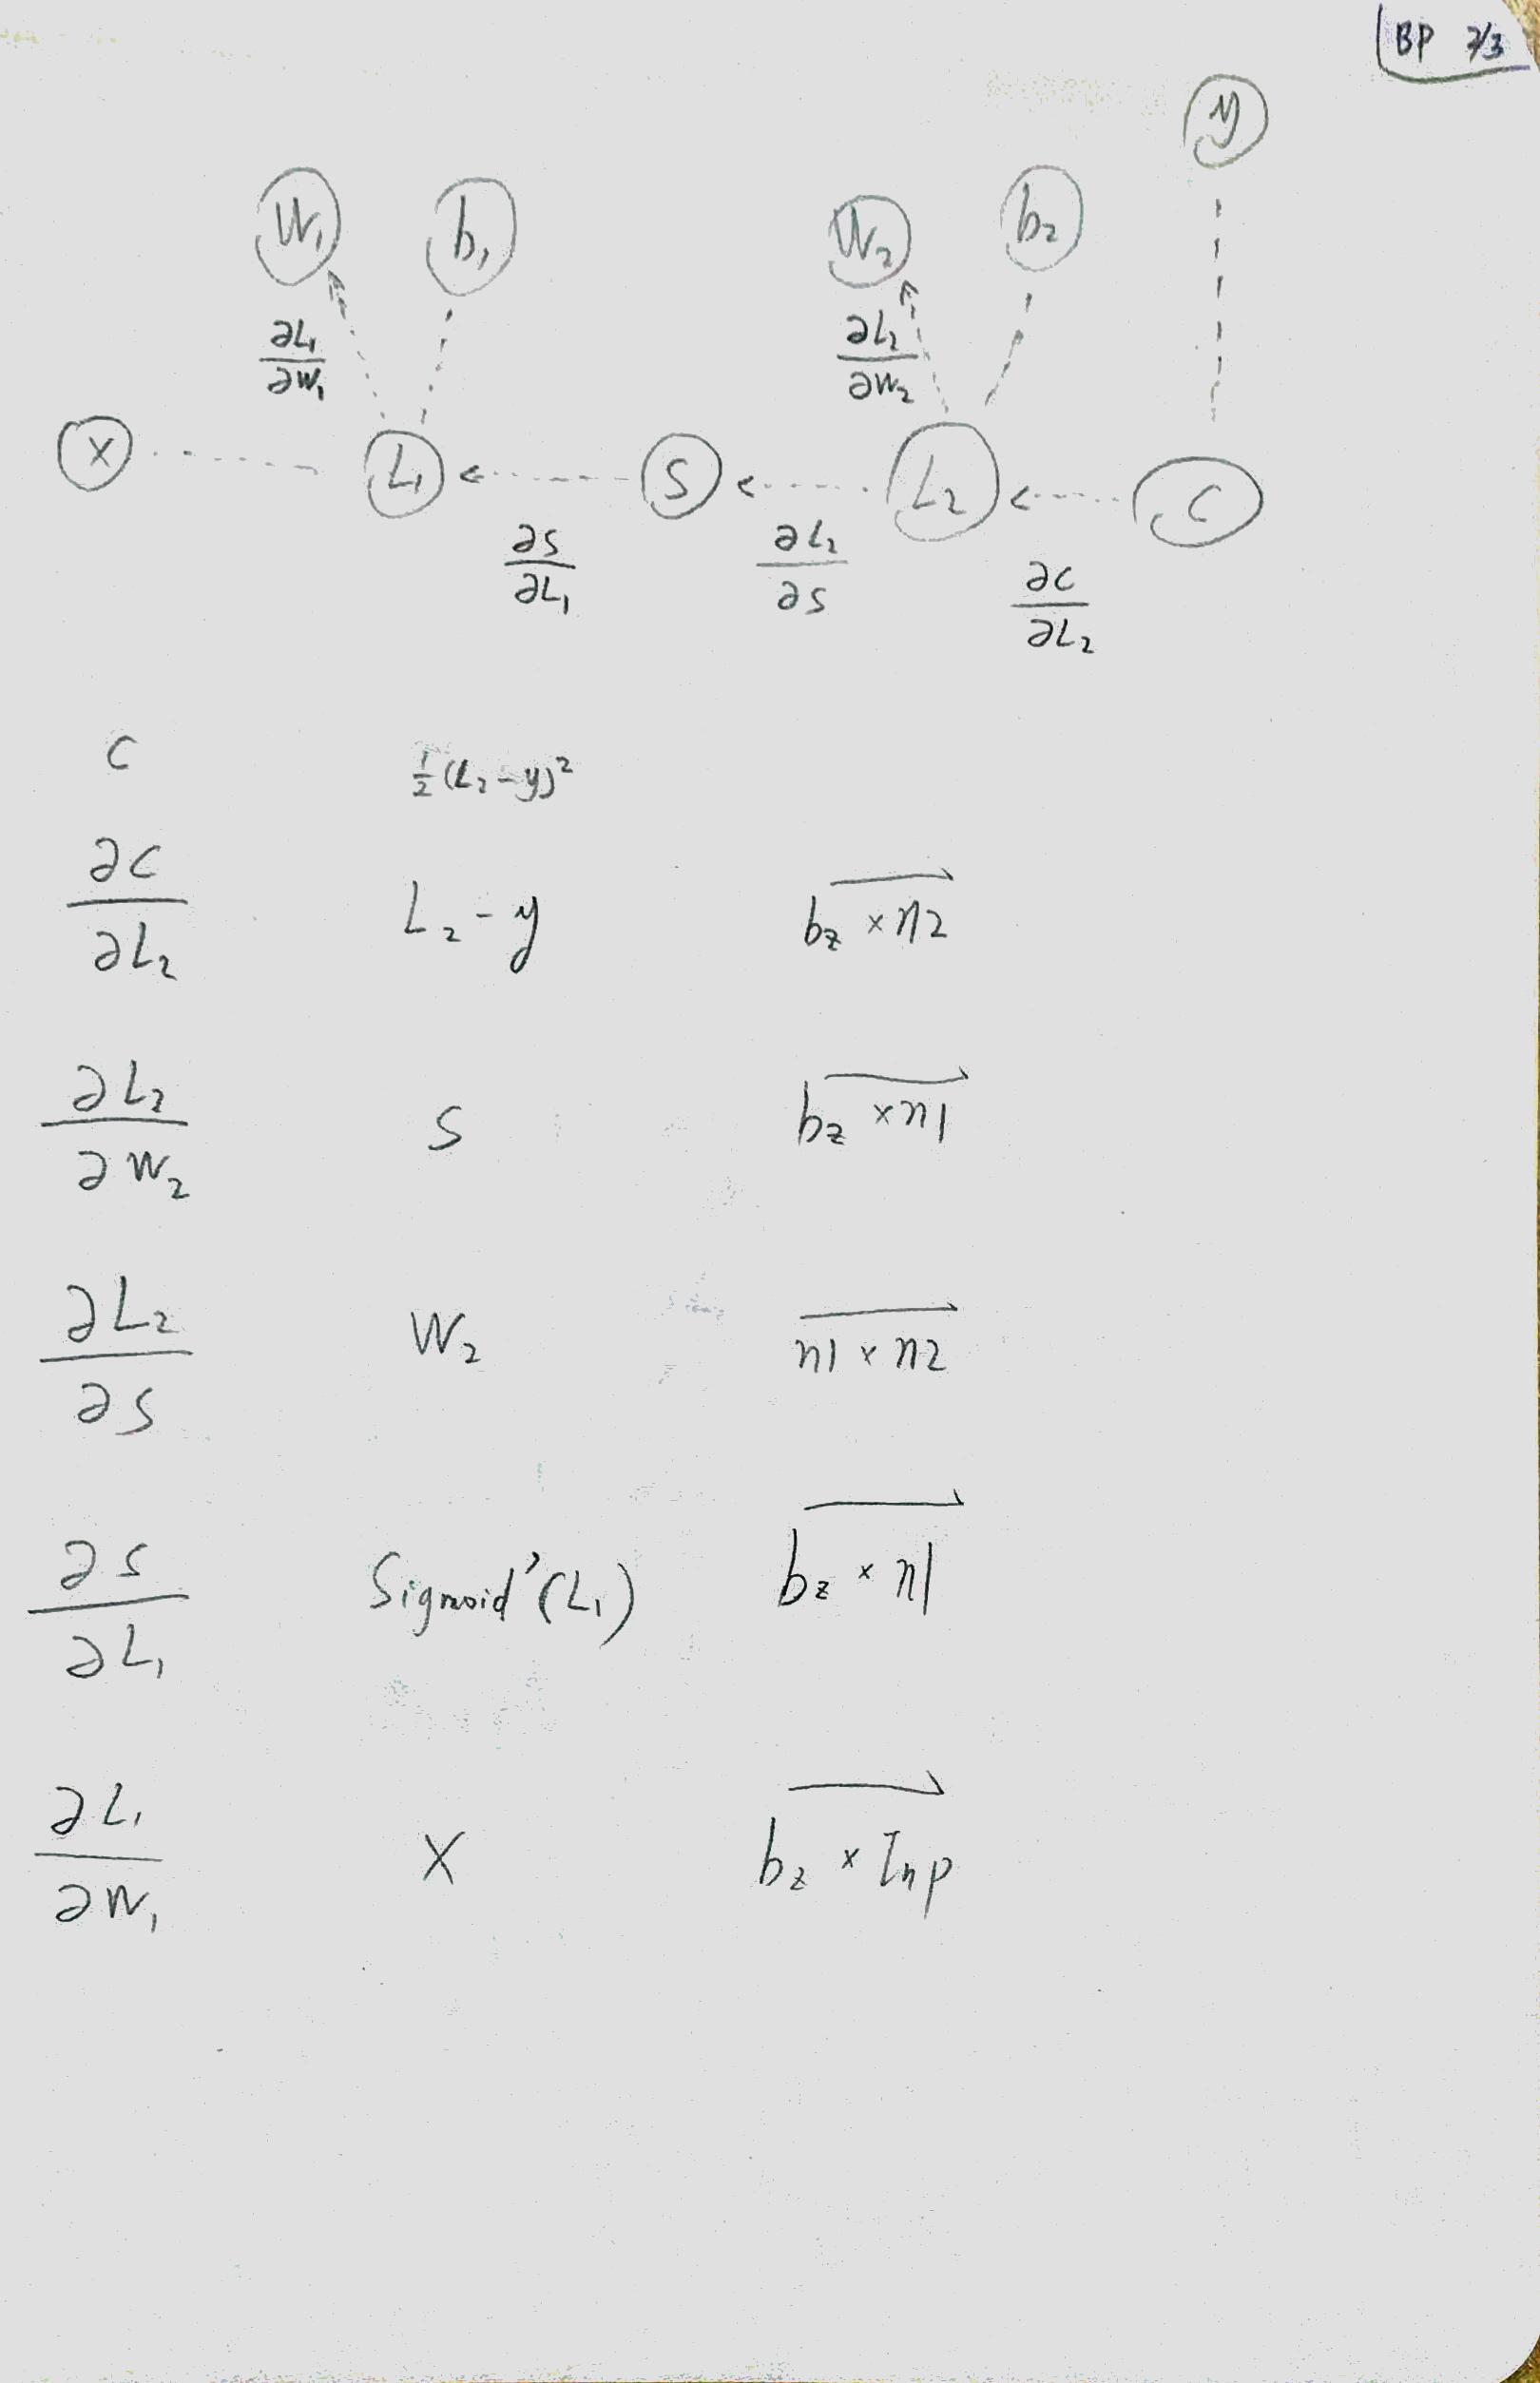 BP 2/3
y
W₁ b₁ W₂ b₂
∂L₁/∂W₁ ∂L₂/∂W₂
X L₁ S L₂ C
∂S/∂L₁ ∂L₂/∂S ∂C/∂L₂
C ½(L₂-y)²
∂C/∂L₂ L₂-y bz × n2
∂L₂/∂W₂ S bz × n1
∂L₂/∂S W₂ n1 × n2
∂S/∂L₁ Sigmoid'(L₁) bz × n1
∂L₁/∂W₁ X bz × Inp